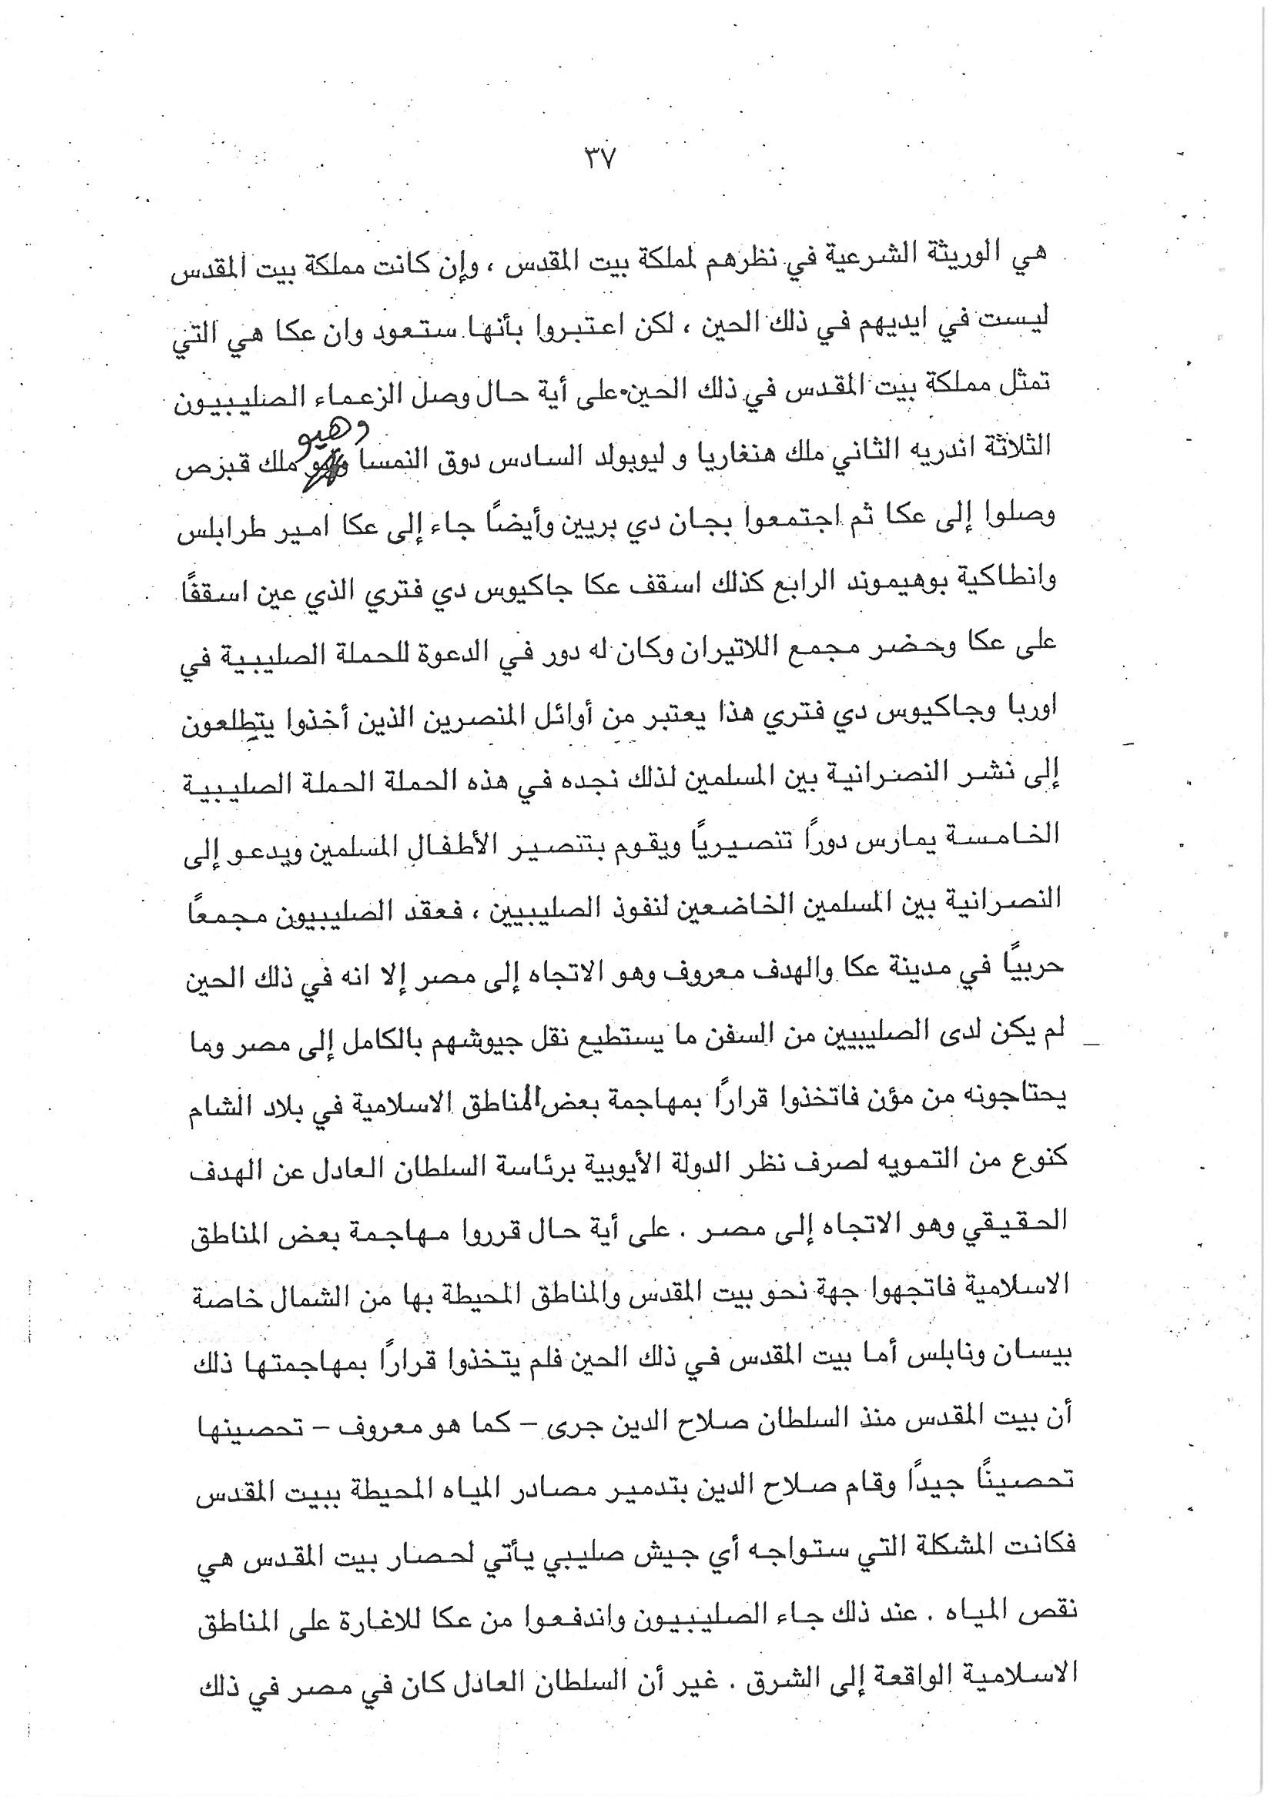 ٣٧
هي الوريثة الشرعية في نظرهم لمملكة بيت المقدس ، وإن كانت مملكة بيت المقدس
ليست في ايديهم في ذلك الحين ، لكن اعتبروا بأنها ستعود وان عكا هي التي
تمثل مملكة بيت المقدس في ذلك الحين. على أية حال وصل الزعماء الصليبيون
الثلاثة اندريه الثاني ملك هنغاريا و ليوبولد السادس دوق النمسا وهيو ملك قبرص
وصلوا إلى عكا ثم اجتمعوا بجان دي بريين وأيضًا جاء إلى عكا امير طرابلس
وانطاكية بوهيموند الرابع كذلك اسقف عكا جاكيوس دي فتري الذي عين اسقفًا
على عكا وحضر مجمع اللاتيران وكان له دور في الدعوة للحملة الصليبية في
اوربا وجاكيوس دي فتري هذا يعتبر من أوائل المنصرين الذين أخذوا يتطلعون
إلى نشر النصرانية بين المسلمين لذلك نجده في هذه الحملة الحملة الصليبية
الخامسة يمارس دورًا تنصيريًا ويقوم بتنصير الأطفال المسلمين ويدعو إلى
النصرانية بين المسلمين الخاضعين لنفوذ الصليبيين ، فعقد الصليبيون مجمعًا
حربيًا في مدينة عكا والهدف معروف وهو الاتجاه إلى مصر إلا انه في ذلك الحين
لم يكن لدى الصليبيين من السفن ما يستطيع نقل جيوشهم بالكامل إلى مصر وما
يحتاجونه من مؤن فاتخذوا قرارًا بمهاجمة بعض المناطق الاسلامية في بلاد الشام
كنوع من التمويه لصرف نظر الدولة الأيوبية برئاسة السلطان العادل عن الهدف
الحقيقي وهو الاتجاه إلى مصر . على أية حال قرروا مهاجمة بعض المناطق
الاسلامية فاتجهوا جهة نحو بيت المقدس والمناطق المحيطة بها من الشمال خاصة
بيسان ونابلس أما بيت المقدس في ذلك الحين فلم يتخذوا قرارًا بمهاجمتها ذلك
أن بيت المقدس منذ السلطان صلاح الدين جرى – كما هو معروف – تحصينها
تحصينًا جيدًا وقام صلاح الدين بتدمير مصادر المياه المحيطة ببيت المقدس
فكانت المشكلة التي ستواجه أي جيش صليبي يأتي لحصار بيت المقدس هي
نقص المياه . عند ذلك جاء الصليبيون واندفعوا من عكا للاغارة على المناطق
الاسلامية الواقعة إلى الشرق . غير أن السلطان العادل كان في مصر في ذلك